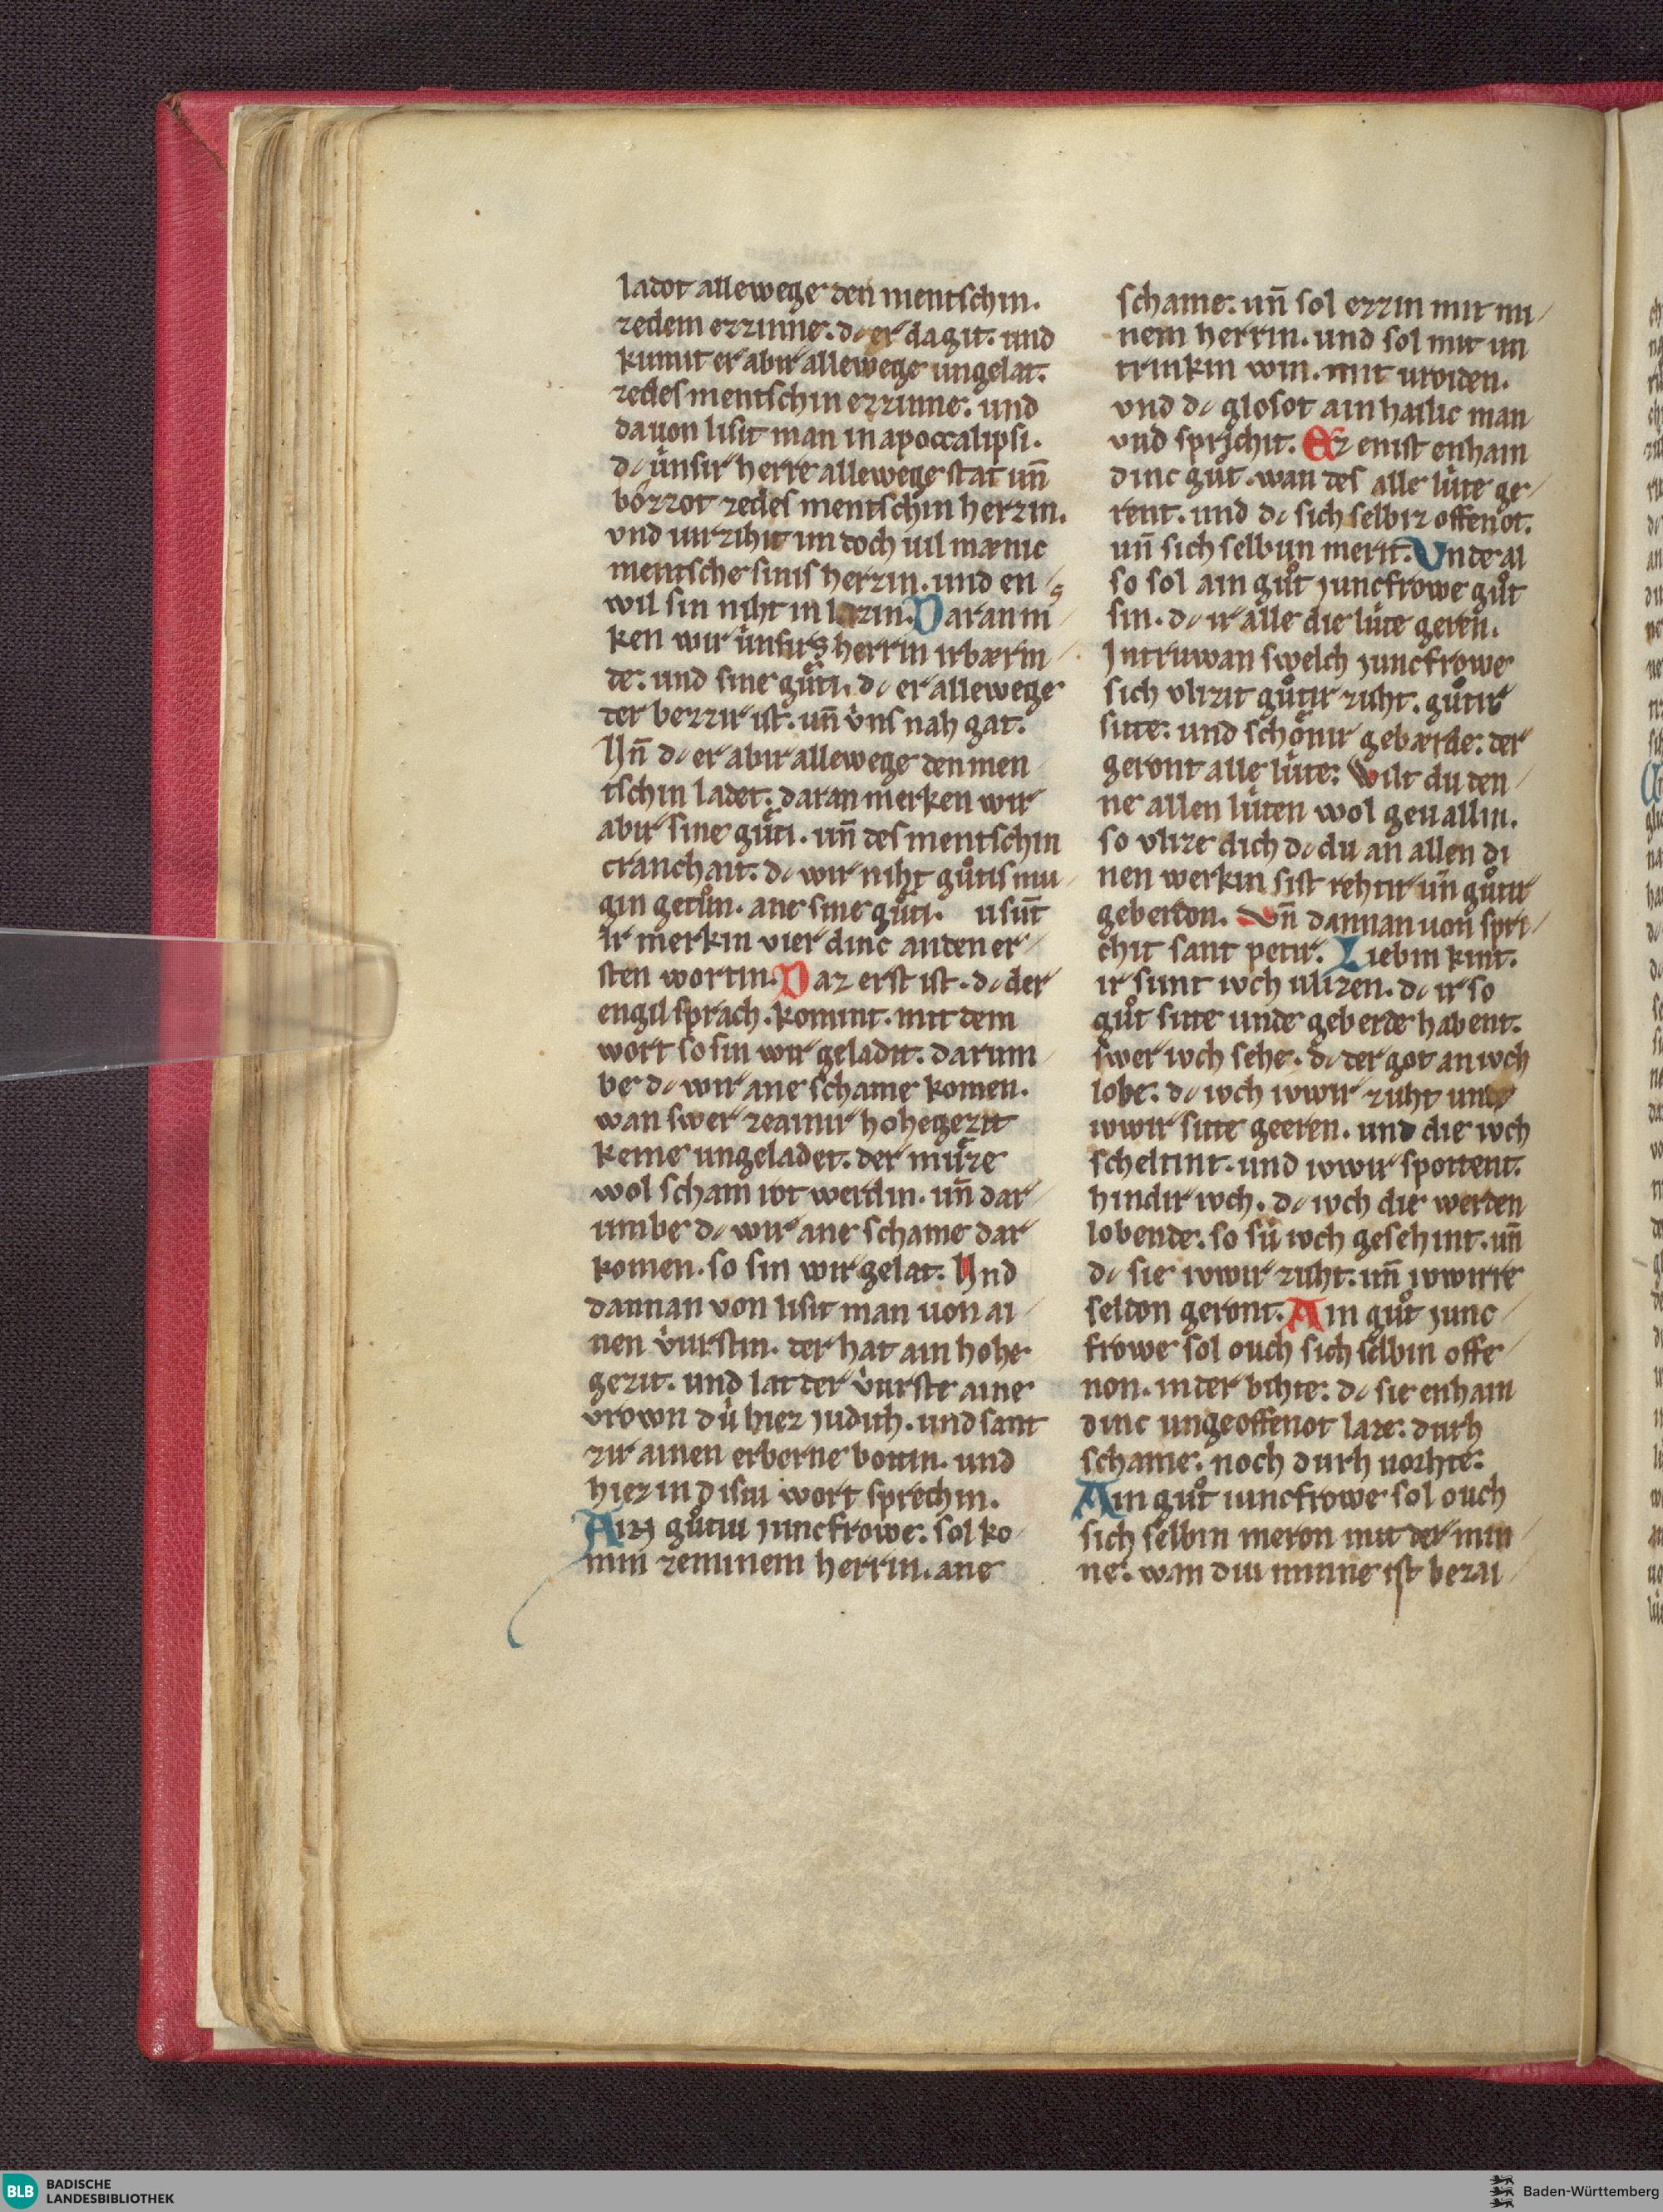 ladot allewege den mentschin.
zedem ezzinne. dc er da git. und
kumit er abir allewege ungelat.
zedes mentschin ezzinne. und
dauon lisit man in apoccalipsi.
dc únsir herre allewege stat un̄
bôzzot zedes mentschin herzin.
vnd uirzihit im doch uil mænic
mentsche sinis herzin. und en
wil sin niht in lazin. Daran m
ken wir únsirs herrin irbærm
de. und sine gůti. dc er allewege
der bezzir ist. un̄ v́ns nah gat.
Un̄ dc er abir allewege den men
tschin ladet. daran merken wir
abir sine gůti. un̄ des mentschin
cranchait. dc wir niht gůtis mu
gin getůn. ane sine gůti. usunt
ir merkin vier dinc an den er
sten wortin. Daz erst ist. dc der
engil sprach. komint. mit dem
wort so sin wir geladit. darum
be dc wir ane schame komen.
wan swer ze ainir hohegezit
keme ungeladet. der můze
wol scham rot werdin. un̄ dar
umbe dc wir ane schame dar
komen. so sin wir gelat. Und
dannan von lisit man uon ai
nen v́urstin. der hat ain hohe
gezit. und lat der v́urste aine
vrown dú hiez judith. und sant
zir ainen erberne bottin. und
hiez in disiu wort sprechin.
Ain gůtiu juncfrowe. sol ko
min ze minem herrin. ane
schame. un̄ sol ezzin mit mi
nem herrin. und sol mit im
trinkin win. mit vroiden.
vnd dc glosot ain hailic man
vnd sprichit. Ez enist enhain
dinc gůt. wan des alle lúte ge
rent. und dc sich selbiz offenot.
un̄ sich selbun merit. Unde al
so sol ain gůt juncfrowe gůt
sin. dc ir alle die lúte geren.
Intruwan swelch juncfrowe
sich vlizit gůtir zuht. gůtir
sitte. und schônir gebærde. der
geront alle lúte. Wilt du den
ne allen lúten wol geuallin.
so vlize dich dc du an allen di
nen werkin sist rehtir un̄ gůtir
geberdon. Un̄ dannan uon spri
chit sant petir. Liebin kint.
ir sunt iuch ulizen. dc ir so
gůt sitte unde geberde habent.
swer iuch sehe. dc der got an iuch
lobe. dc iuch iuwir zuht und
iuwir sitte geeren. und die iuch
scheltint. und iuwir spottent.
hindir iuch. dc iuch die werden
lobende. so sú iuch gesehint. un̄
dc sie iuwir zuht. un̄ iuwirre
seldon geront. Ain gůt junc
frowe sol ouch sich selbin offe
non. inder bihte. dc sie enhain
dinc ungeoffenot laze. durh
schame. noch durh uorhte.
Ain gůt iuncfrowe sol ouch
sich selbin meron mit der min
ne. wan diu minne ist bezai
BLB BADISCHE
LANDESBIBLIOTHEK
Baden-Württemberg